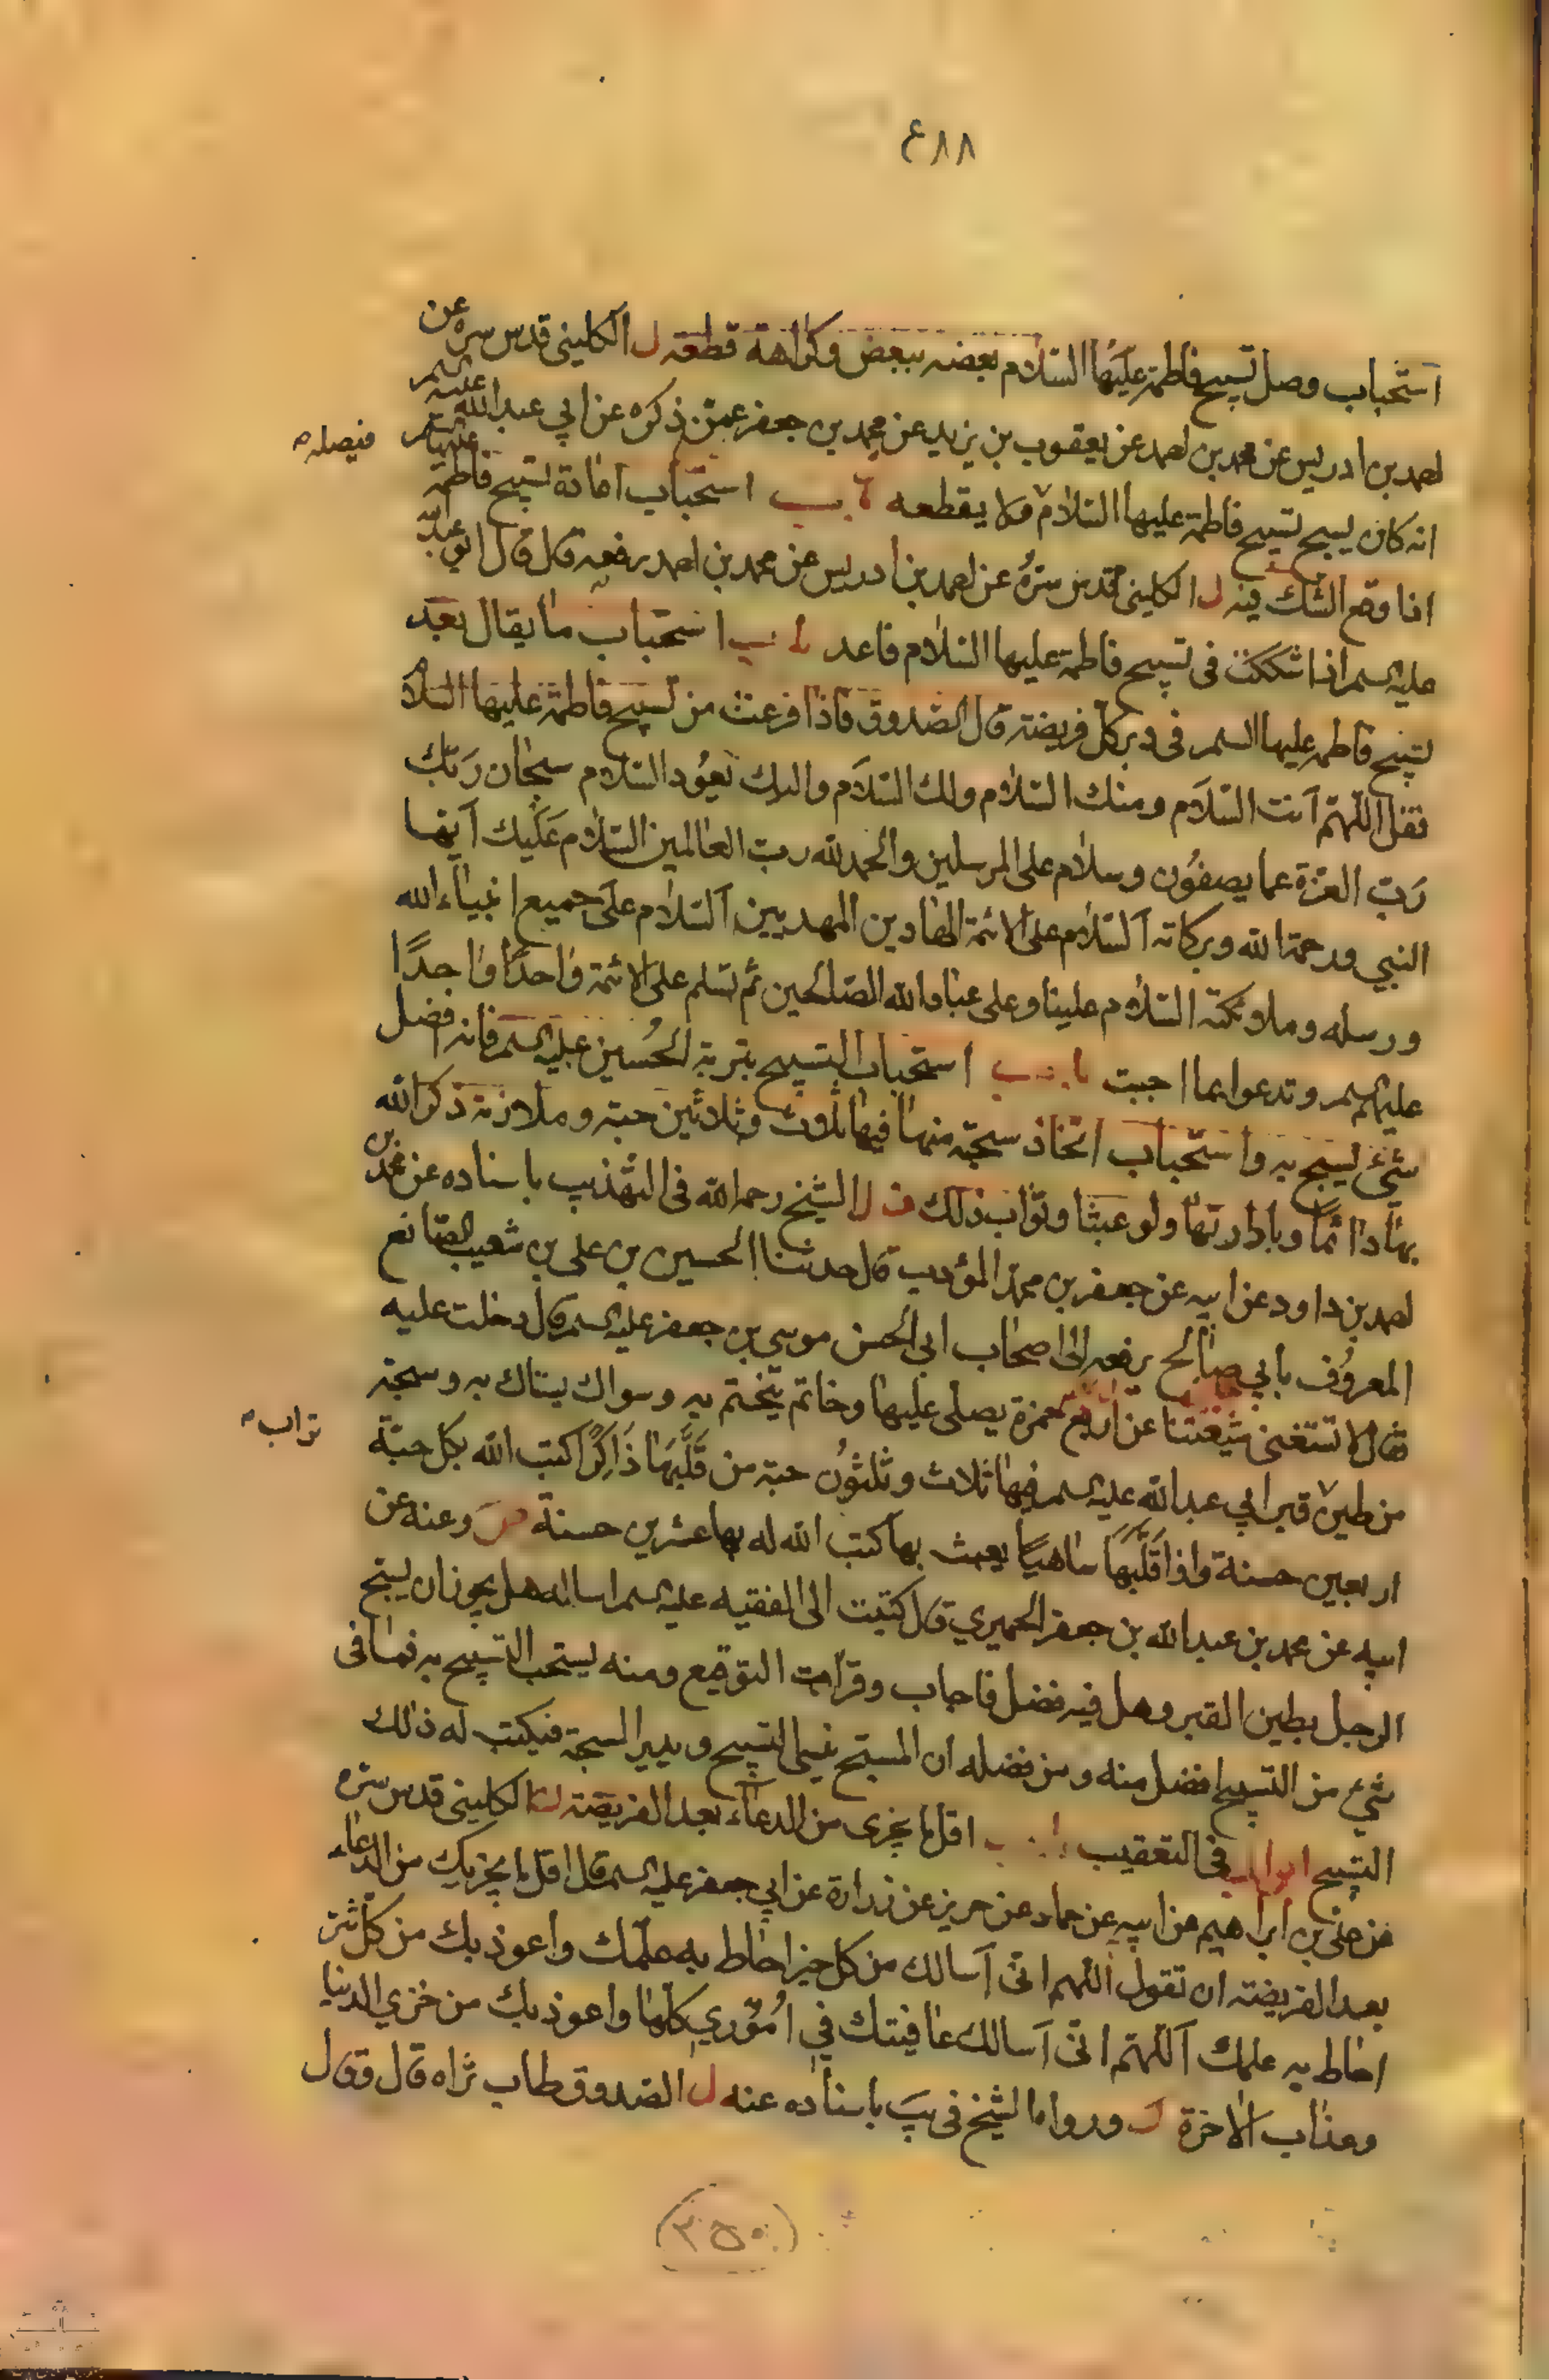 ٤٨٨
استحباب وصل تسبيح فاطمة عليها السلام بعضه ببعض وكراهة قطعه ل الكليني قدس سره عن
احمد بن ادريس عن محمد بن احمد عن يعقوب بن يزيد عن محمد بن جعفر عمن ذكره عن ابي عبد الله عليه السلم
انه كان يسبح تسبيح فاطمة عليها السلام ولا يقطعه باب استحباب اعادة تسبيح فاطمة عليها السلم
فيصله
اذا وقع الشك فيه ل الكليني قدس سره عن احمد بن ادريس عن محمد بن احمد رفعه قال قال ابو عبد الله
عليه السلم اذا شككت في تسبيح فاطمة عليها السلام فاعد باب استحباب ما يقال بعد
تسبيح فاطمه عليها السلم في دبر كل فريضة قال الصدوق فاذا فرغت من تسبيح فاطمة عليها السلام
فقل اللهم انت السلام ومنك السلام ولك السلام واليك يعود السلام سبحان ربك
رب العزة عما يصفون وسلام على المرسلين والحمد لله رب العالمين السلام عليك ايها
النبي ورحمة الله وبركاته السلام على الائمة الهادين المهديين السلام على جميع انبياء الله
ورسله وملائكته السلام علينا وعلى عباد الله الصالحين ثم تسلم على الائمة واحدًا واحدًا
عليهم السلم وتدعوا بما احببت باب استحباب التسبيح بتربة الحسين عليه السلم فانه افضل
شيء يسبح به واستحباب اتخاذ سبحة منها فيها ثلاث وثلاثين حبة وملازمة ذكر الله
بها دائمًا وبادارتها ولو عبثا وثواب ذلك ل الشيخ رحمه الله في التهذيب باسناده عن محمد بن
احمد بن داود عن ابيه عن جعفر بن محمد المؤدب قال حدثنا الحسين بن علي بن شعيب الصائغ
المعروف بابي صالح يرفعه الى اصحاب ابي الحسن موسى بن جعفر عليه السلم قال دخلت عليه
فقال لا تستغني شيعتنا عن اربع خمرة يصلي عليها وخاتم يتختم به وسواك يستاك به وسبحة
من طين قبر ابي عبد الله عليه السلم فيها ثلاث وثلثون حبة من قلبها ذاكرًا كتب الله بكل حبة
تراب
اربعين حسنة واذا قلبها ساهيًا يعبث بها كتب الله له بها عشرين حسنة وعنه عن
ابيه عن محمد بن عبد الله بن جعفر الحميري قال كتبت الى الفقيه عليه السلم اساله هل يجوز ان يسبح
الرجل بطين القبر وهل فيه فضل فاجاب وقرات التوقيع ومنه يستحب التسبيح به فما في
شيء من التسبيح افضل منه ومن فضله ان المسبح ينسى التسبيح ويدير السبحة فيكتب له ذلك
التسبيح ابواب في التعقيب باب اقل ما يجزى من الدعاء بعد الفريضة ل الكليني قدس سره
عن علي بن ابراهيم عن ابيه عن حماد عن حريز عن زرارة عن ابي جعفر عليه السلم قال اقل ما يجزيك من الدعاء
بعد الفريضة ان تقول اللهم اني اسالك من كل خير احاط به علمك واعوذ بك من كل شر
احاط به علمك اللهم اني اسالك عافيتك في اموري كلها واعوذ بك من خزي الدنيا
وعذاب الاخرة ورواه الشيخ في يب باسناده عنه ل الصدوق طاب ثراه قال وقال
(٣٥٠)